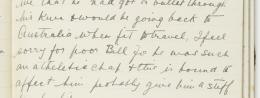 me that he had got a bullet through
his knee & would be going back to
Australia when fit to travel, I feel
sorry for poor Bill Jo he was such
an athletic chap & this is bound to
affect him probably give him a stiff